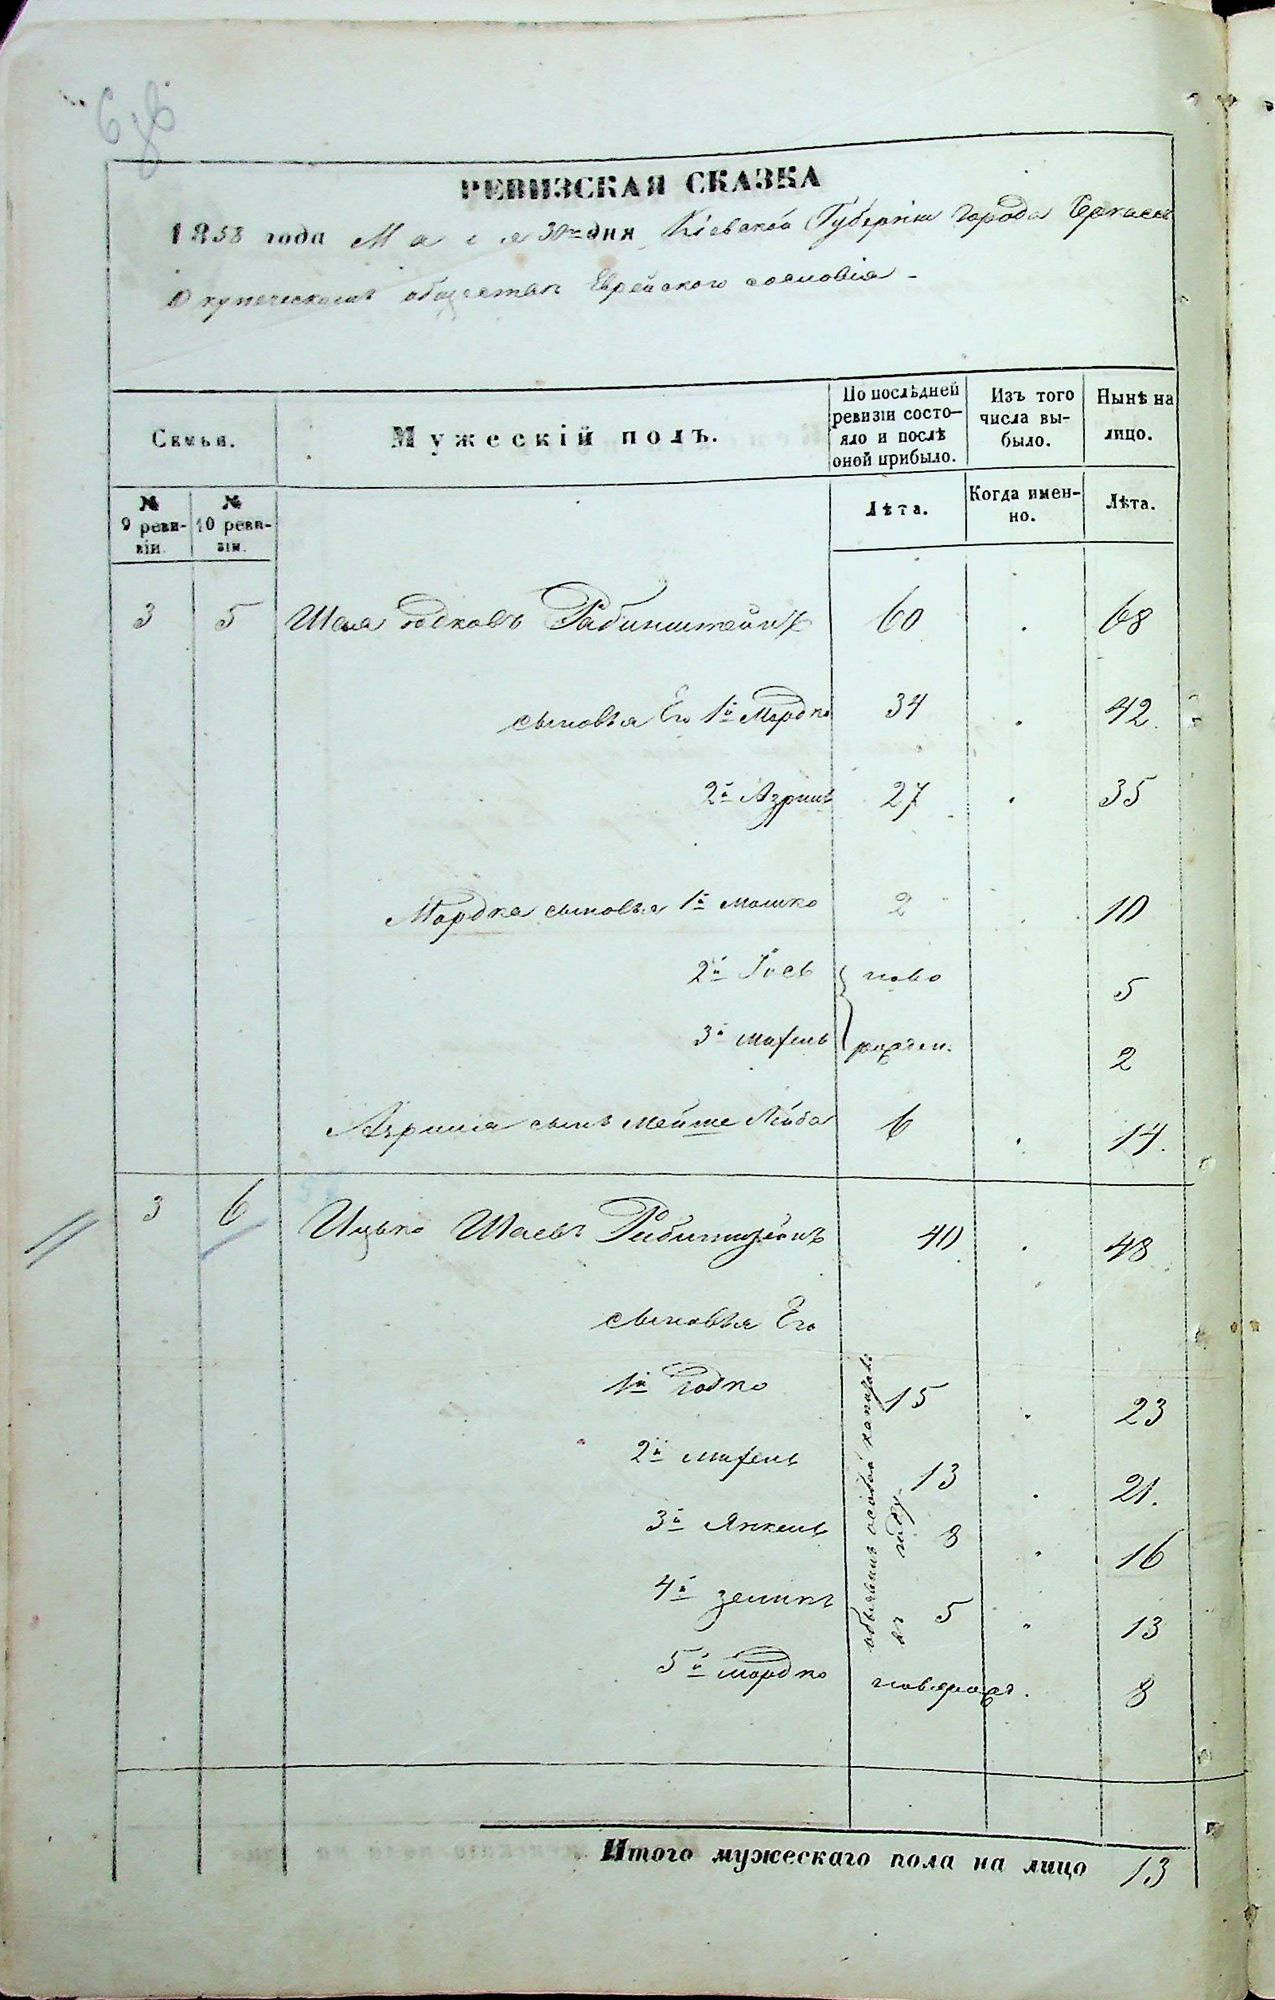 РЕВИЗСКАЯ СКАЗКА
1858 года Мая 30го дня Кіевской Губерніи города Черкасъ
О купеческомъ обществѣ Еврейского сословія
Семьи.
Мужескій полъ.
По послѣдней ревизіи состояло и послѣ оной прибыло.
Изъ того числа выбыло.
Нынѣ на лицо.
№ 9 ревизіи.
№ 10 ревизіи.
Лѣта.
Когда именно.
Лѣта.
3 5 Шая Годковъ Рабинштейнъ 60 . 68
сыновья Его 1й Мордко 34 . 42
2й Азриль 27 . 35
Мордка сыновья 1й Мошко 2 . 10
2й Іось ново 5
3й Михель рожден. 2
Азриля сынъ Лейба 6 . 14.
3 6 Ицько Шаевъ Рабинштейнъ 40 . 48
сыновья Его
1й Годко 15 . 23
2й Михель 13 . 21.
3й Янкель 8 . 16
4й Зеликъ 5 . 13
5й Мордко новорож. 8
объявилъ особой капиталъ
въ году
Итого мужескаго пола на лицо 13